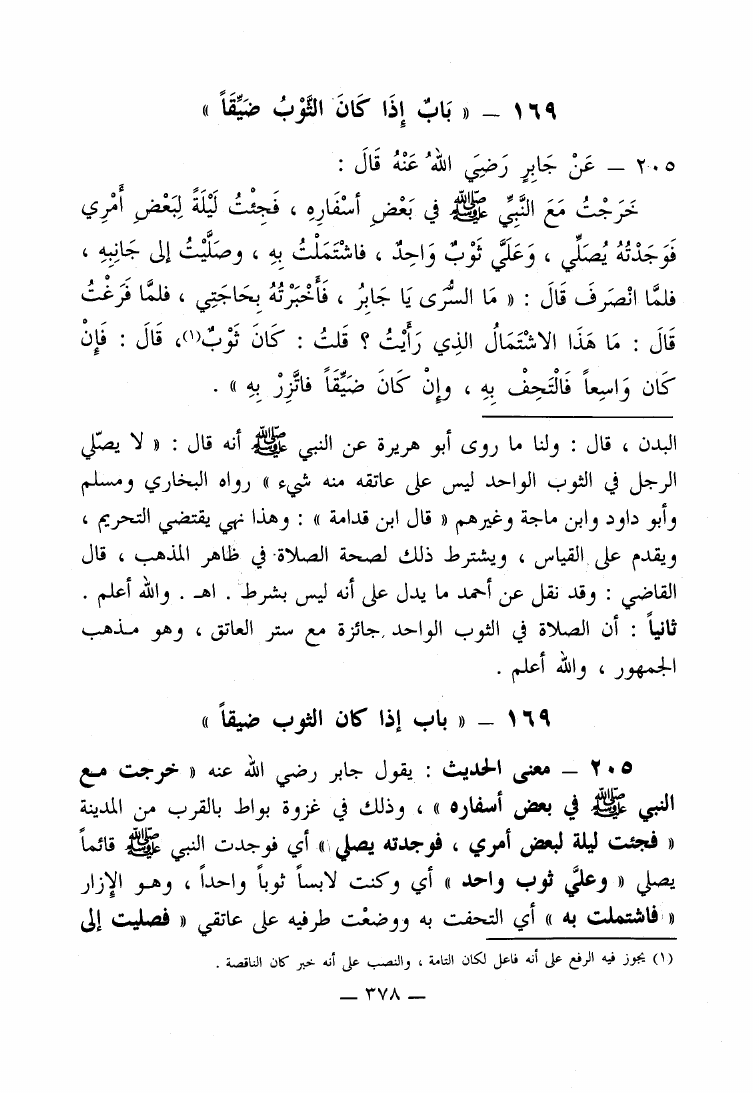 ١٦٩ – « بَابٌ إِذَا كَانَ الثَّوْبُ ضَيِّقَاً »
٢٠٥ – عَنْ جَابِرٍ رَضِيَ اللهُ عَنْهُ قَالَ :
خَرَجْتُ مَعَ النَّبِيِّ ﷺ في بَعْضِ أسْفَارِهِ ، فَجِئْتُ لَيْلَةً لِبَعْضِ أَمْرِي
فَوَجَدْتُهُ يُصَلِّي ، وَعَلَيَّ ثَوْبٌ وَاحِدٌ ، فاشْتَمَلْتُ بِهِ ، وصَلَّيْتُ إلى جَانِبِهِ ،
فلمَّا انْصَرفَ قَالَ : « مَا السُّرَى يَا جَابِرُ ، فَأَخْبَرْتُهُ بِحَاجَتِي ، فلمَّا فَرَغْتُ
قَالَ : مَا هَذَا الاشْتِمَالُ الذِي رَأَيْتُ ؟ قلتُ : كَانَ ثَوْبٌ(١)، قَالَ : فَإِنْ
كَان وَاسِعاً فَالْتَحِفْ بِهِ ، وإِنْ كَانَ ضَيِّقَاً فاتَّزِرْ بِهِ » .
البدن ، قال : ولنا ما روى أبو هريرة عن النبي ﷺ أنه قال : « لا يصلّي
الرجل في الثوب الواحد ليس على عاتقه منه شيء » رواه البخاري ومسلم
وأبو داود وابن ماجة وغيرهم « قال ابن قدامة » : وهذا نهي يقتضي التحريم ،
ويقدم على القياس ، ويشترط ذلك لصحة الصلاة في ظاهر المذهب ، قال
القاضي : وقد نقل عن أحمد ما يدل على أنه ليس بشرط . اهـ . والله أعلم .
ثانياً : أن الصلاة في الثوب الواحد جائزة مع ستر العاتق ، وهو مذهب
الجمهور ، والله أعلم .
١٦٩ – « باب إذا كان الثوب ضيقاً »
٢٠٥ – معنى الحديث : يقول جابر رضي الله عنه « خرجت مع
النبي ﷺ في بعض أسفاره » ، وذلك في غزوة بواط بالقرب من المدينة
« فجئت ليلة لبعض أمري ، فوجدته يصلي » أي فوجدت النبي ﷺ قائماً
يصلي « وعليَّ ثوب واحد » أي وكنت لابساً ثوباً واحداً ، وهو الإزار
« فاشتملت به » أي التحفت به ووضعْت طرفيه على عاتقي « فصليت إلى
(١) يجوز فيه الرفع على أنه فاعل لكان التامة ، والنصب على أنه خبر كان الناقصة .
– ٣٧٨ –